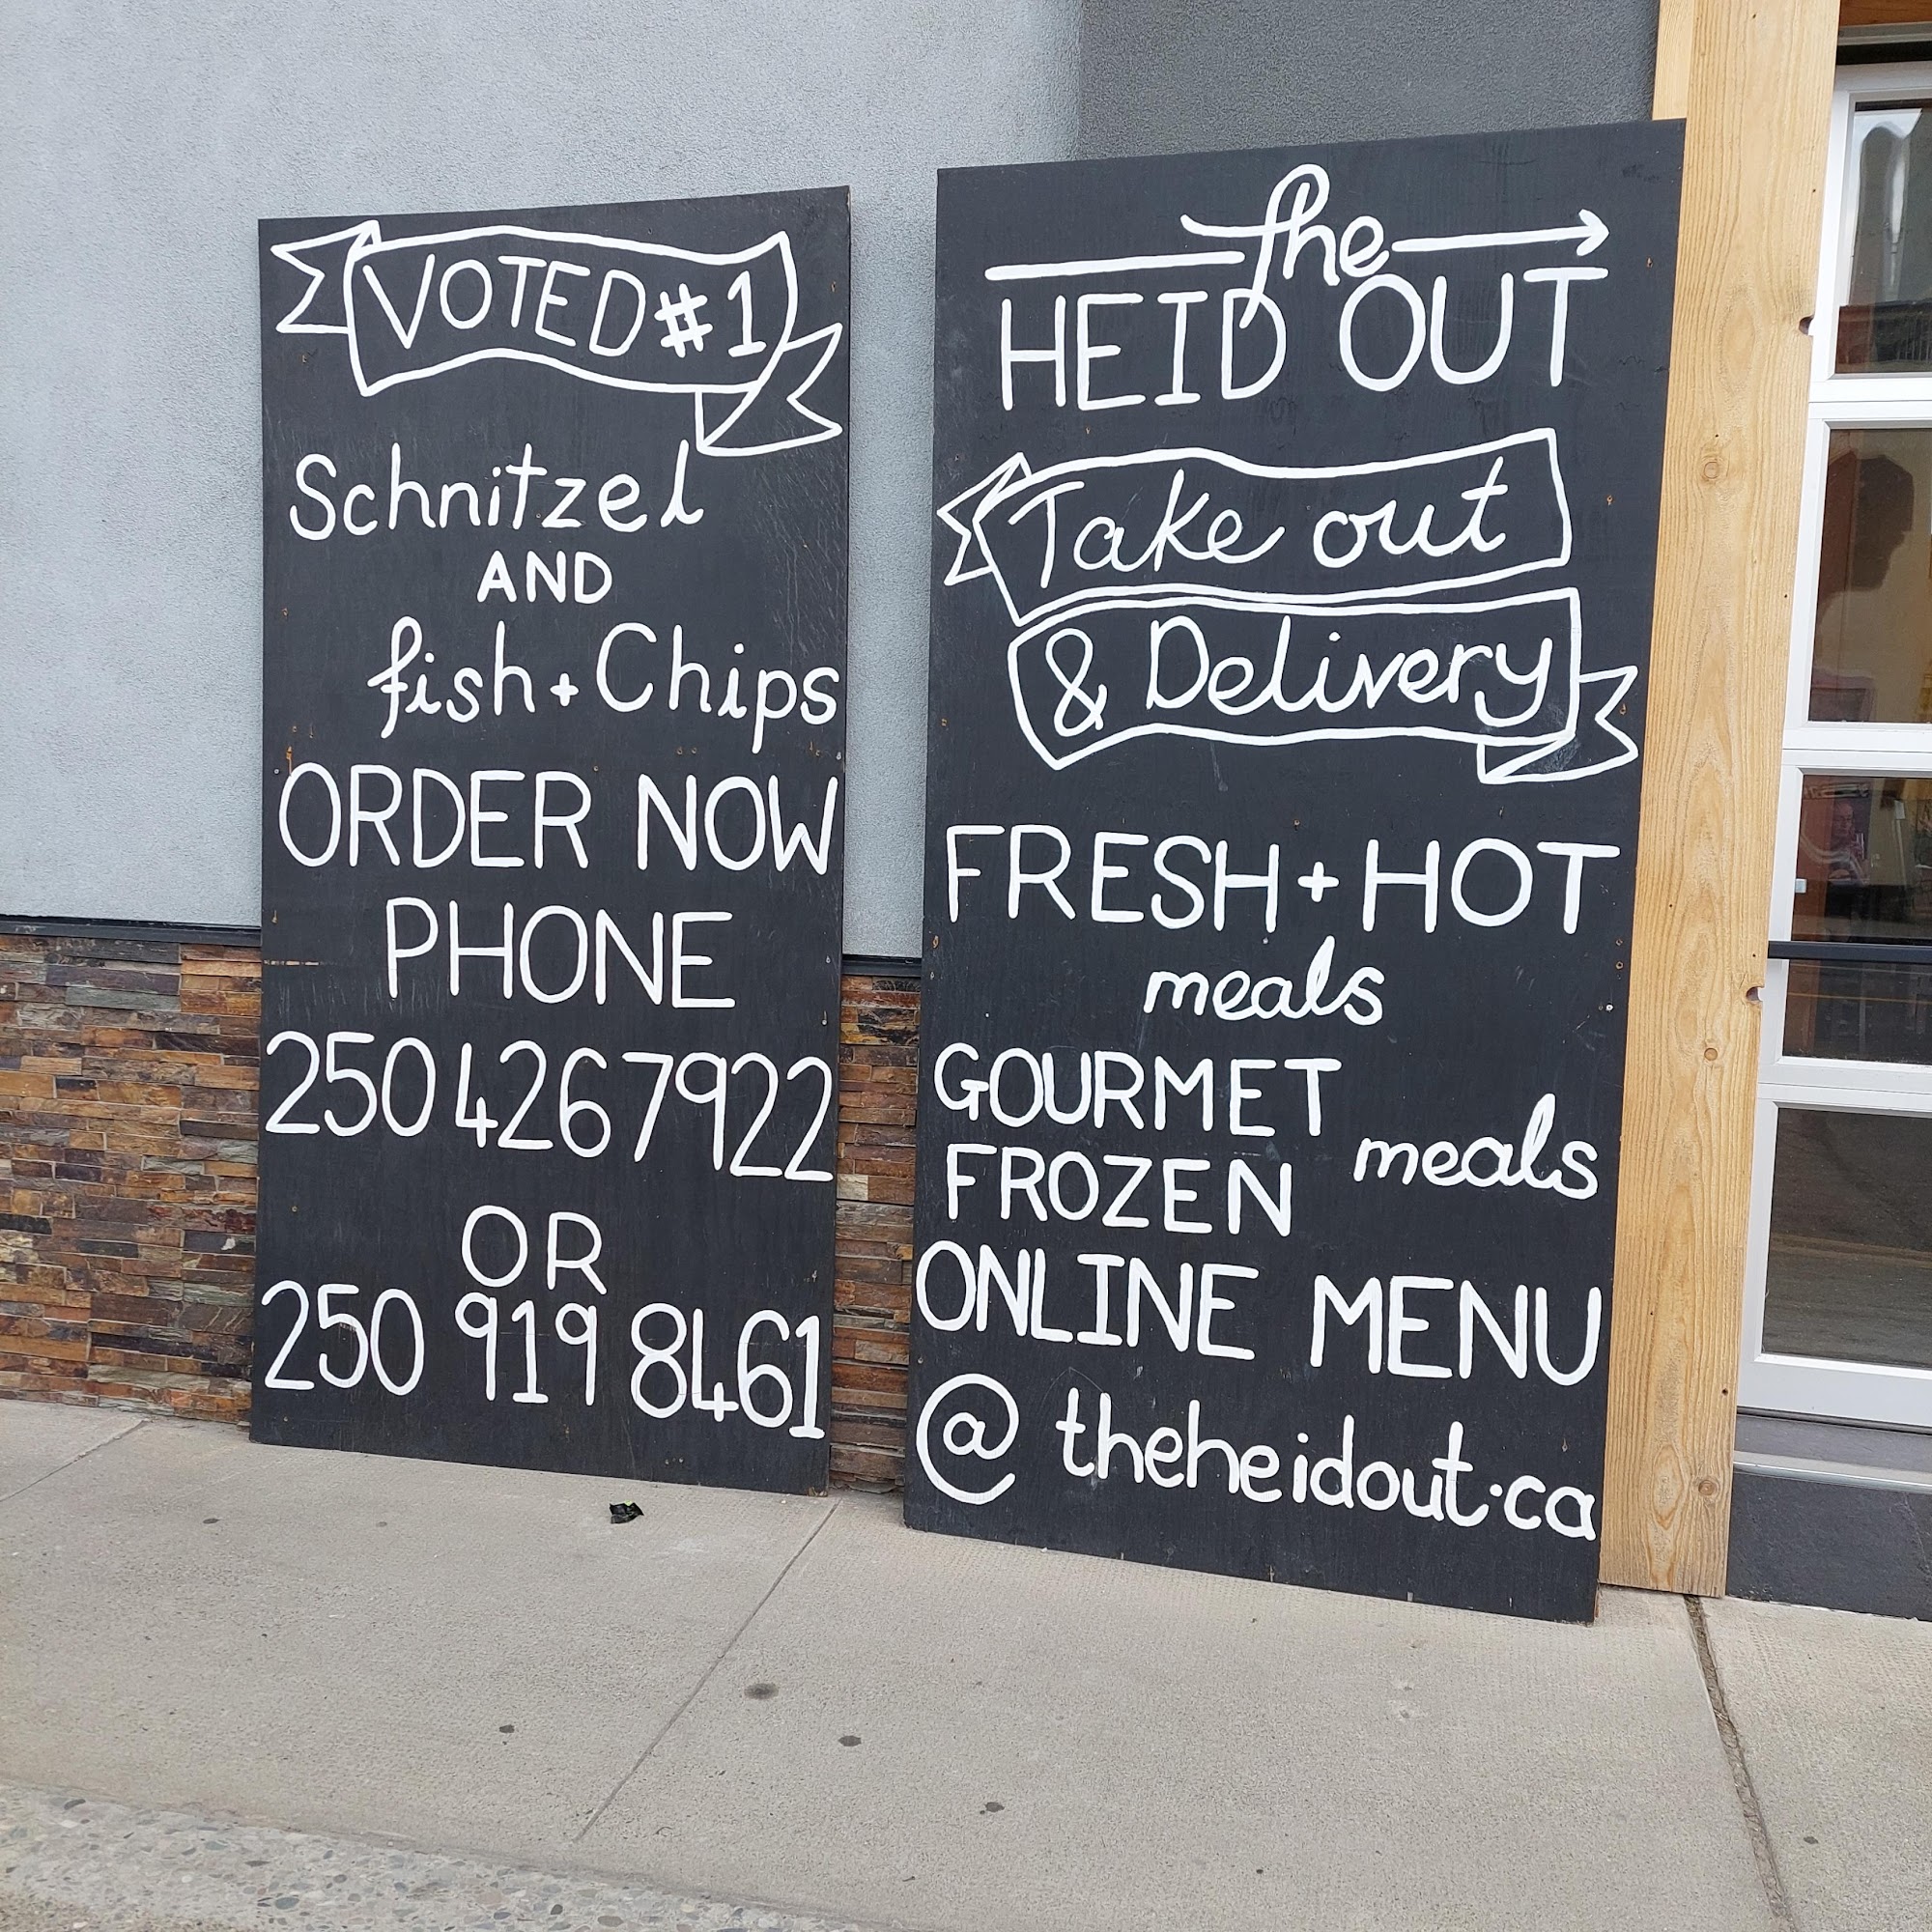 VOTED #1
Schnitzel
AND
fish + Chips
ORDER NOW
PHONE
250 426 7922
OR
250 919 8461
the
HEID OUT
Take out
& Delivery
FRESH + HOT
meals
GOURMET
FROZEN meals
ONLINE MENU
@ theheidout.ca